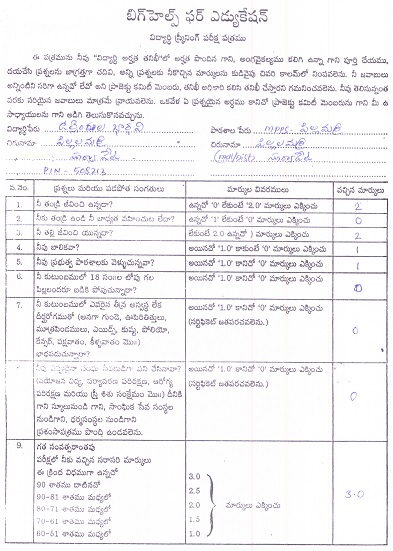 బిగ్‌హెల్ప్ ఫర్ ఎడ్యుకేషన్
విద్యార్థి స్క్రీనింగ్ పరీక్ష పత్రము
ఈ పత్రమును నీవు "విద్యార్థి అర్హత తనిఖీ"లో అర్హత పొందిన గాని, అంగవైకల్యము కలిగి ఉన్నా గాని పూర్తి చేయుము,
దయచేసి ప్రశ్నలను జాగ్రత్తగా చదివి, అన్ని ప్రశ్నలకు నీకొచ్చిన మార్కులను కుడివైపు చివరి కాలమ్‌లో నింపవలెను. నీ జవాబులు
అన్నింటిని సరిగా ఉన్నవో లేదో అని ప్రాజెక్టు కమిటీ మెంబరు, తనిఖీ అధికారి కలిసి తనిఖీ చేస్తారని గమనించవలెను. నీవు తెలుసున్నంత
వరకు సరియైన జవాబులు మాత్రమే వ్రాయవలెను. ఒకవేళ ఏ ప్రశ్నయైన అర్థము కానిచో ప్రాజెక్టు కమిటీ మెంబరును గాని మీ ఉ
పాధ్యాయులను గాని అడిగి తెలుసుకొనవచ్చును.
విద్యార్థిపేరు భార్గవి పాఠశాల పేరు mpps. పిల్లలమర్రి
చిరునామా పిల్లలమర్రి చిరునామా పిల్లలమర్రి
సూర్యాపేట (mal/Dist) సూర్యాపేట
PIN - 508213
వ.నెం. ప్రశ్నలు మరియు పదపోత సంగతులు మార్కుల వివరములు వచ్చిన మార్కులు
1. నీ తండ్రి జీవించి ఉన్నడా? ఉన్నచో '0' లేకుంటే '2.0' మార్కులు ఎక్కించు 2
2. నీకు తండ్రి ఉండి నీ బాధ్యత వహించుట లేదా? ఉన్నచో '1' లేకుంటే '0' మార్కులు ఎక్కించు 0
3. నీ తల్లి జీవించి యున్నదా? లేకుంటే 2.0 ఉన్నచో ) మార్కులు ఎక్కించు 2
4. నీవు బాలికవా? అయినచో '1.0' కాకుంటే '0' మార్కులు ఎక్కించు 1
5. నీవు ప్రభుత్వ పాఠశాలకు వెళ్ళుచున్నావా? అయినచో '1.0' కానిచో '0' మార్కులు ఎక్కించు 1
6. నీ కుటుంబములో 18 సం॥ల లోపు గల అయినచో '1.0' కానిచో '0' మార్కులు ఎక్కించు 0
పిల్లలందరూ బడికి పోవుచున్నారా?
7. నీ కుటుంబములో ఎవరైన తీవ్ర అస్వస్థ లేక అయినచో '1.0' కానిచో '0' మార్కులు ఎక్కించు 0
దీర్ఘరోగముతో (అనగా గుండె, ఊపిరితిత్తులు, (సర్టిఫికెట్ జతపరచవలెను.)
మూత్రపిండములు, ఎయిడ్స్, కుష్ఠు, పోలియో,
కేన్సర్, పక్షవాతం, కీళ్ళవాతం మొ॥)
బాధపడుచున్నారా?
అయినచో '1.0' కానిచో '0' మార్కులు ఎక్కించు 0
(వయోజన విద్య, పర్యావరణ పరిరక్షణ, ఆరోగ్య (సర్టిఫికెట్ జతపరచవలెను.)
పరిరక్షణ మరియు స్త్రీ శిశు సంక్షేమం మొ॥) దీనికి
గాని స్కూలునుండి గాని, సాంఘిక సేవ సంస్థల
నుండిగాని, ధర్మసంస్థల నుండిగాని
ప్రశంసాపత్రము పొంది ఉండవలెను.
9. గత సంవత్సరాంతపు
పరీక్షలో నీకు వచ్చిన సరాసరి మార్కులు
ఈ క్రింద విధముగా ఉన్నచో 3.0
90 శాతము దాటినచో 2.5
90-81 శాతము మధ్యలో 2.0 మార్కులు ఎక్కించు 3.0
80-71 శాతము మధ్యలో 1.5
70-61 శాతము మధ్యలో 1.0
60-51 శాతము మధ్యలో